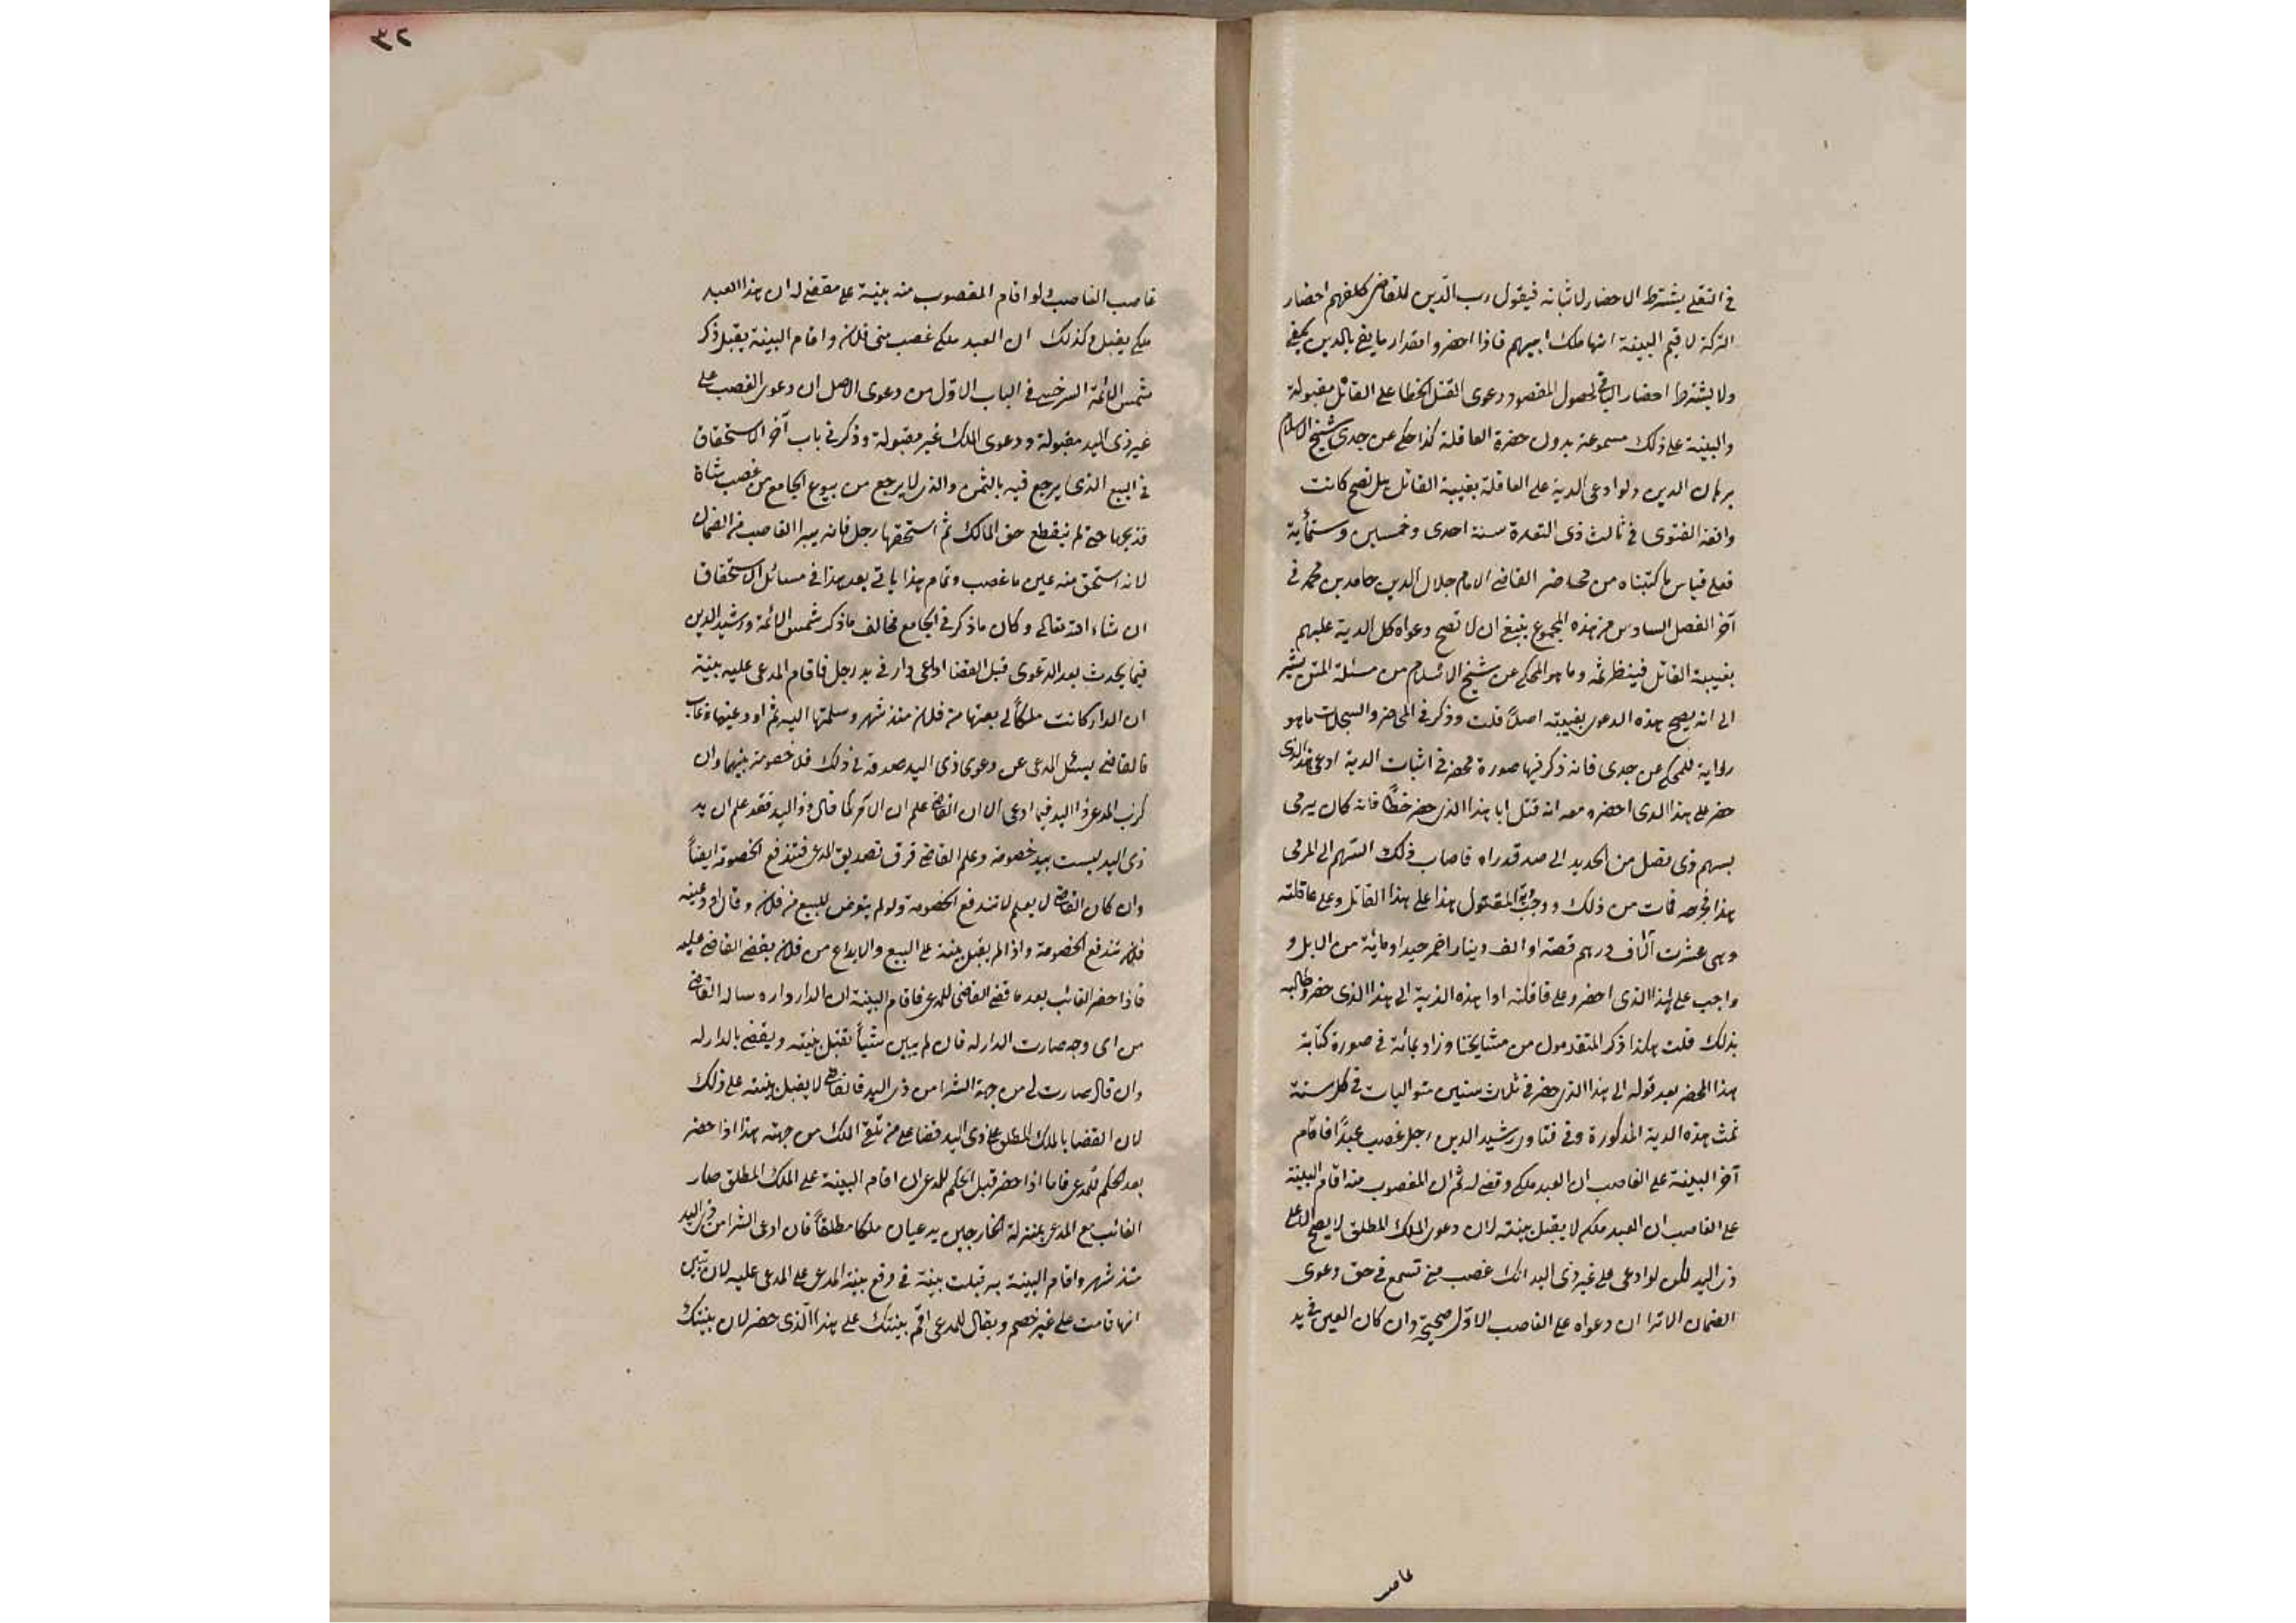 في النقلي يشترط الاحضار لاثباته فيقول رب الدين للقاضي كلفهم احضار
التركة لاقيم البينة انها ملك ابيهم فاذا احضروا مقدار ما يفي بالدين يكفي
ولا يشترط احضار الباقي لحصول المقصود ودعوى القتل الخطا على القاتل مقبولة
والبينة على ذلك مسموعة بدون حضرة العاقلة كذا حكي عن جدي شيخ الاسلام
برهان الدين ولو ادعى الدية على العاقلة بغيبة القاتل هل تصح كانت
واقعة الفتوى في ثالث ذى القعدة سنة احدى وخمسين وستمأية
فعلى قياس ما كتبناه من محاضر القاضي الامام جلال الدين حامد بن محمد في
آخر الفصل السادس من هذه المجموع ينبغي ان لا تصح دعواه كل الدية عليهم
بغيبة القاتل فينظر ثمه وما هو المحكي عن شيخ الاسلام من مسئلة المتن يشير
الى انه يصح هذه الدعوى بغيبته اصلاً قلت وذكر في المحاضر والسجلات ما هو
رواية للمحكي عن جدى فانه ذكر فيها صورة محضر في اثبات الدية ادعى هذا الذى
حضر على هذا الذى احضره معه انه قتل ابا هذا الذى حضر خطًا فانه كان يرمى
بسهم ذى نصل من الحديد الى صيد قد راه فاصاب ذلك السهم الى المرمى
هذا فجرحه فمات من ذلك ووجب دية المقتول هذا على هذا القاتل وعلى عاقلته
وهى عشرت آلاف درهم فضة او الف دينار احمر جيد او مائة من الابل و
واجب على هذا الذى احضر وعلى قاقلته ادا هذه الدية الى هذا الذى حضر وطالبه
بذلك قلت هكذا ذكر المتقدمون من مشايخنا وزاد بمائة في صورة كتابة
هذا المحضر بعد قوله الى هذا الذى حضر في ثلاث سنين متواليات في كل سنة
ثمث هذه الدية المذكورة وفي فتاوى رشيد الدين رجل غصب عبدًا فاقام
آخر البينة على الغاصب ان العبد ملكي وقضى له ثم ان المغصوب منه اقام البينة
على الغاصب ان العبد ملكه لا يقبل بينته لان دعوى الملك المطلق لا يصح الا على
ذى اليد لكن لو ادعى على غير ذى اليد انك غصبت منى تسمع في حق دعوى
الضمان الا ترا ان دعواه على الغاصب الاول صحيحة وان كان العين في يد
غاصب
٢٣
غاصب الغاصب ولو اقام المغصوب منه بينة على مقضى له ان هذا العبد
ملكي يقبل وكذلك ان العبد ملكي غصب منى فلان واقام البينة يقبل ذكر
شمس الائمة السرخسي في الباب الاول من دعوى الاصل ان دعوى الغصب على
غير ذى اليد مقبولة ودعوى الملك غير مقبولة وذكر في باب آخر الاستحقاق
في البيع الذى يرجع فيه بالثمن والذى لا يرجع من بيوع الجامع من غصب شاة
فذبحها حتى لم ينقطع حق المالك ثم استحقها رجل فانه يبرا الغاصب من الضمان
لانه استحق منه عين ما غصب وتمام هذا ياتي بعد هذا في مسائل الاستحقاق
ان شاء الله تعالى وكان ما ذكر في الجامع مخالف ما ذكر شمس الائمة ورشيد الدين
فيما يحدث بعد الدعوى قبل القضا ادعى دار في يد رجل فاقام المدعى عليه بينة
ان الدار كانت ملكاً لى بعتها من فلان منذ شهر وسلمتها اليه ثم اودعنيها وغاب
فالقاضي يسئل المدعى عن دعوى ذى اليد صدقه في ذلك فلا خصومة بينهما وان
كذب المدعى ذا اليد فيما ادعى الا ان القاضي علم ان الامر كما قال ذو اليد فقد علم ان يد
ذى اليد ليست بيد خصومة وعلم القاضي فرق تصديق المدعى فتندفع الخصومة ايضاً
وان كان القاضي لا يعلم لا تندفع الخصومة ولو لم يتعرض للبيع من فلان وقال اودعنيه
فلان تندفع الخصومة واذا لم يقبل بينة على البيع والايداع من فلان يقضى القاضي عليه
فاذا حضر الغائب بعد ما قضى القاضي للمدعى فاقام البينة ان الدار داره ساله القاضي
من اى وجه صارت الدار له فان لم يبين شيأً تقبل بينته ويقضى بالدار له
وان قال صارت لى من جهة الشرا من ذى اليد فالقاضي لا يقبل بينته على ذلك
لان القضا بالملك المطلق على ذى اليد قضا على من تلقى الملك من جهته هذا اذا حضر
بعد الحكم للمدعى فاما اذا حضر قبل الحكم للمدعى ان اقام البينة على الملك المطلق صار
الغائب مع المدعى بمنزلة الخارجين يدعيان ملكا مطلقاً فان ادعى الشرا من ذى اليد
منذ شهر واقام البينة به قبلت بينة في دفع بينة المدعى على المدعى عليه لان تبين
انها قامت على غير خصم ويقال للمدعى اقم بينتك على هذا الذى حضر لان بينتك